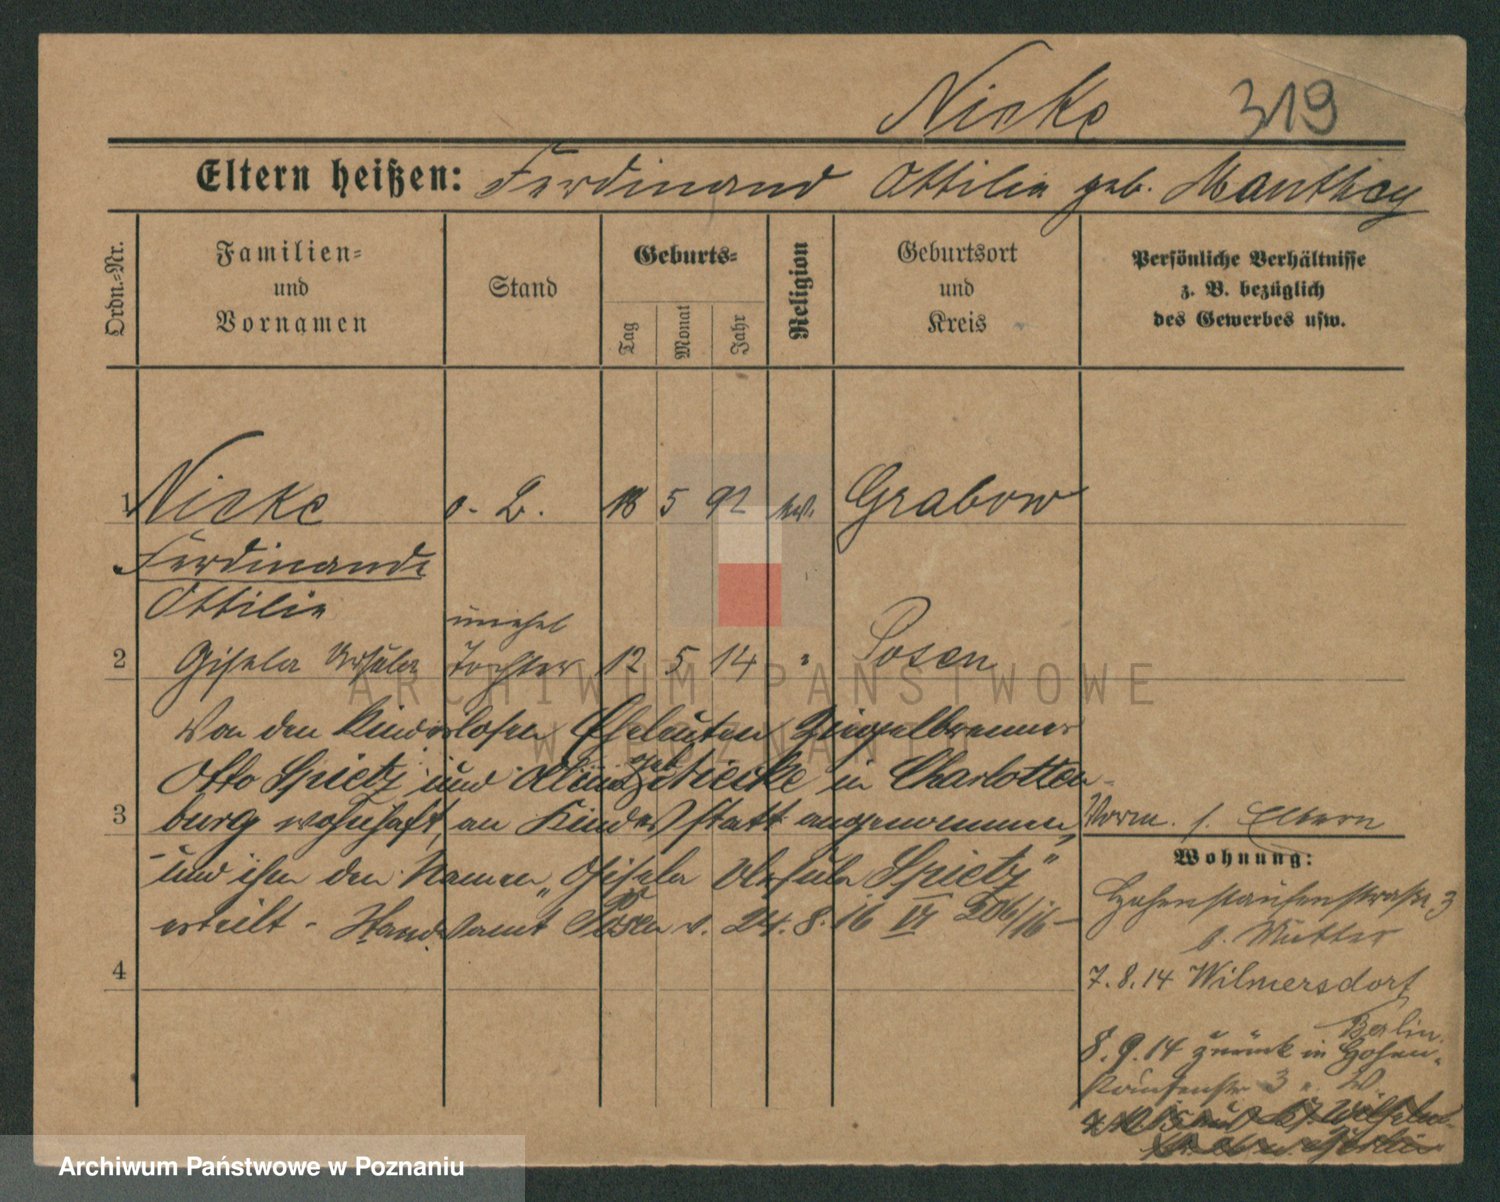 Nicke 319
Eltern heißen: Ferdinand Ottilie geb. Manthey
Ordn.-Nr.
Familien-
und
Vornamen
Stand
Geburts-
Tag
Monat
Jahr
Religion
Geburtsort
und
Kreis
Persönliche Verhältnisse
z. B. bezüglich
des Gewerbes usw.
1 Nicke o. B. 18 5 92 ev. Grabow
Ferdinande
Ottilie
unehel
2 Gisela Ursula Tochter 12 5 14 " Posen
Von den kinderlosen Eheleuten Ziegelbrenner
Otto Spietz und geb. Niecke in Charlotten-
3 burg wohnhaft, an Kindesstatt angenommen,
und ihr den Namen „Gisela Ursula Spietz"
erteilt - Standesamt Posen v. 24. 8. 16 VI 206/16 -
4
Vorm. s. Eltern
Wohnung:
Hohenstaufenstraße 3
b. Mutter
7.8.14 Wilmersdorf
Berlin.
8.9.14 zurück in Hohen-
staufenstr 3
ARCHIWUM PAŃSTWOWE
W POZNANIU
Archiwum Państwowe w Poznaniu